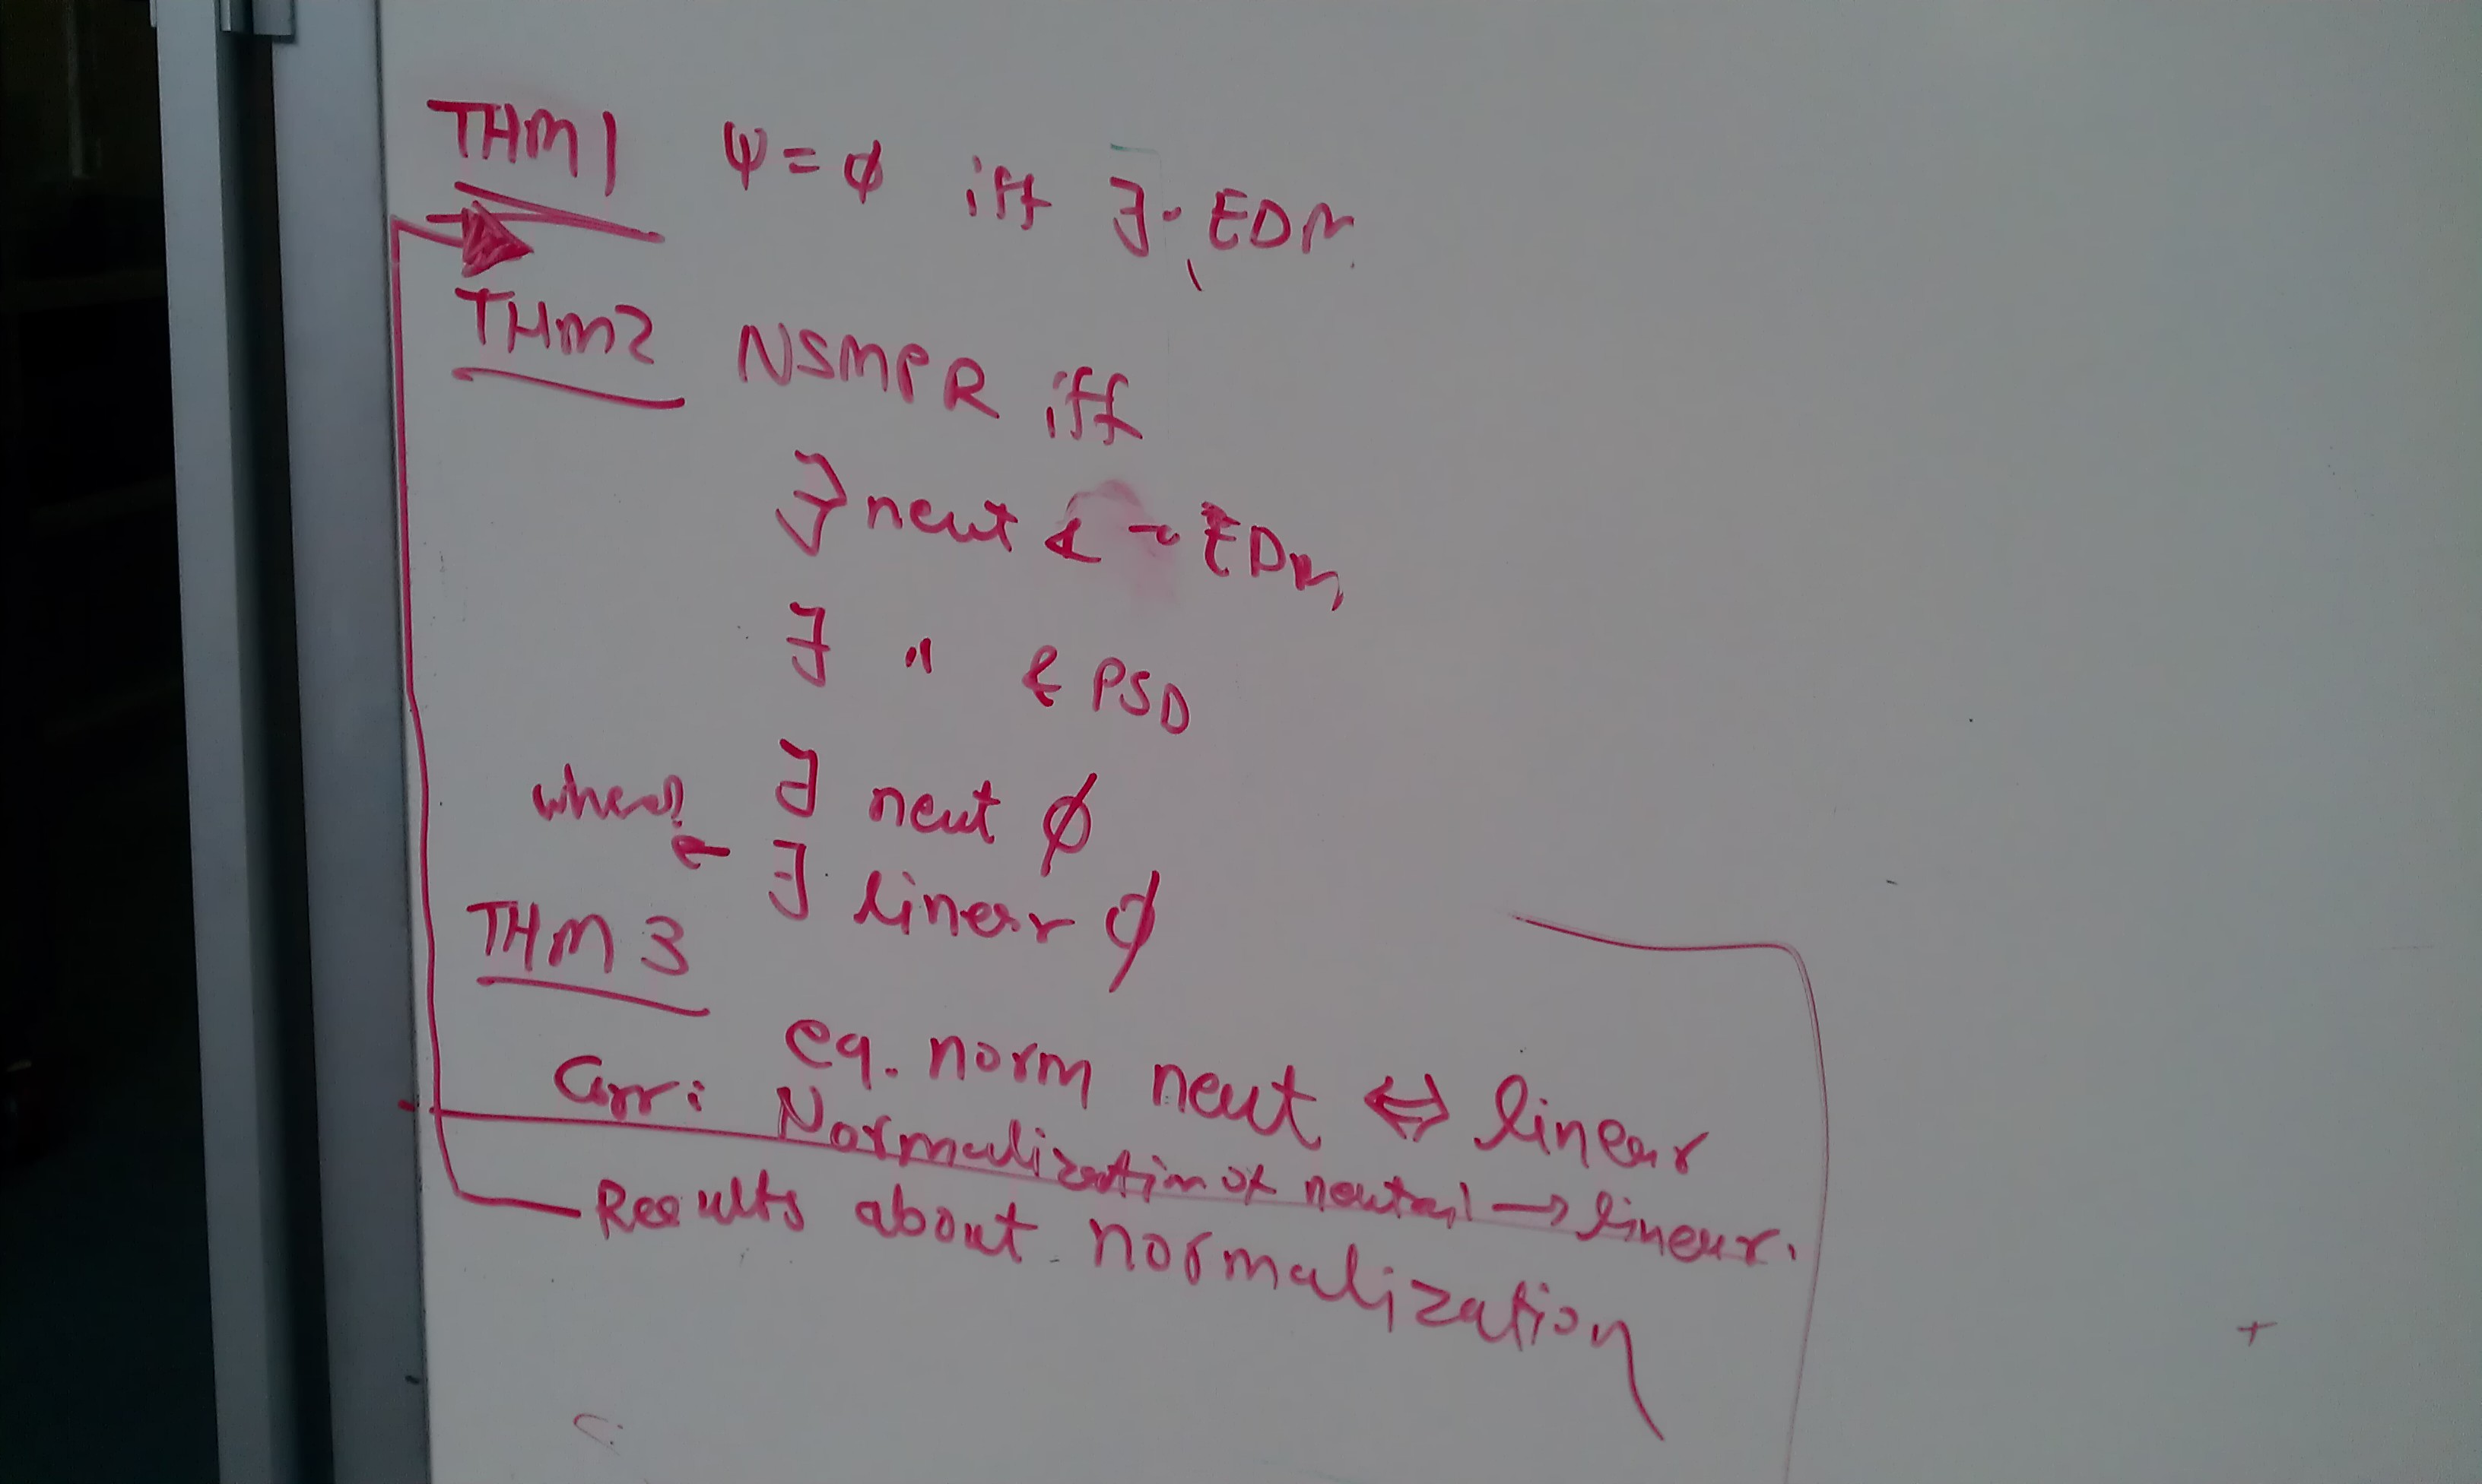 THM1 ψ = ϕ iff ∃ EDM
THM2 NSMPR iff
∃ neut & ¬ EDM
∃ " & PSD
∃ neut ϕ
when? ← ∃ linear ϕ
THM 3
eq. norm neut ⇔ linear
Corr: Normalization of neutral → linear.
Results about normalization